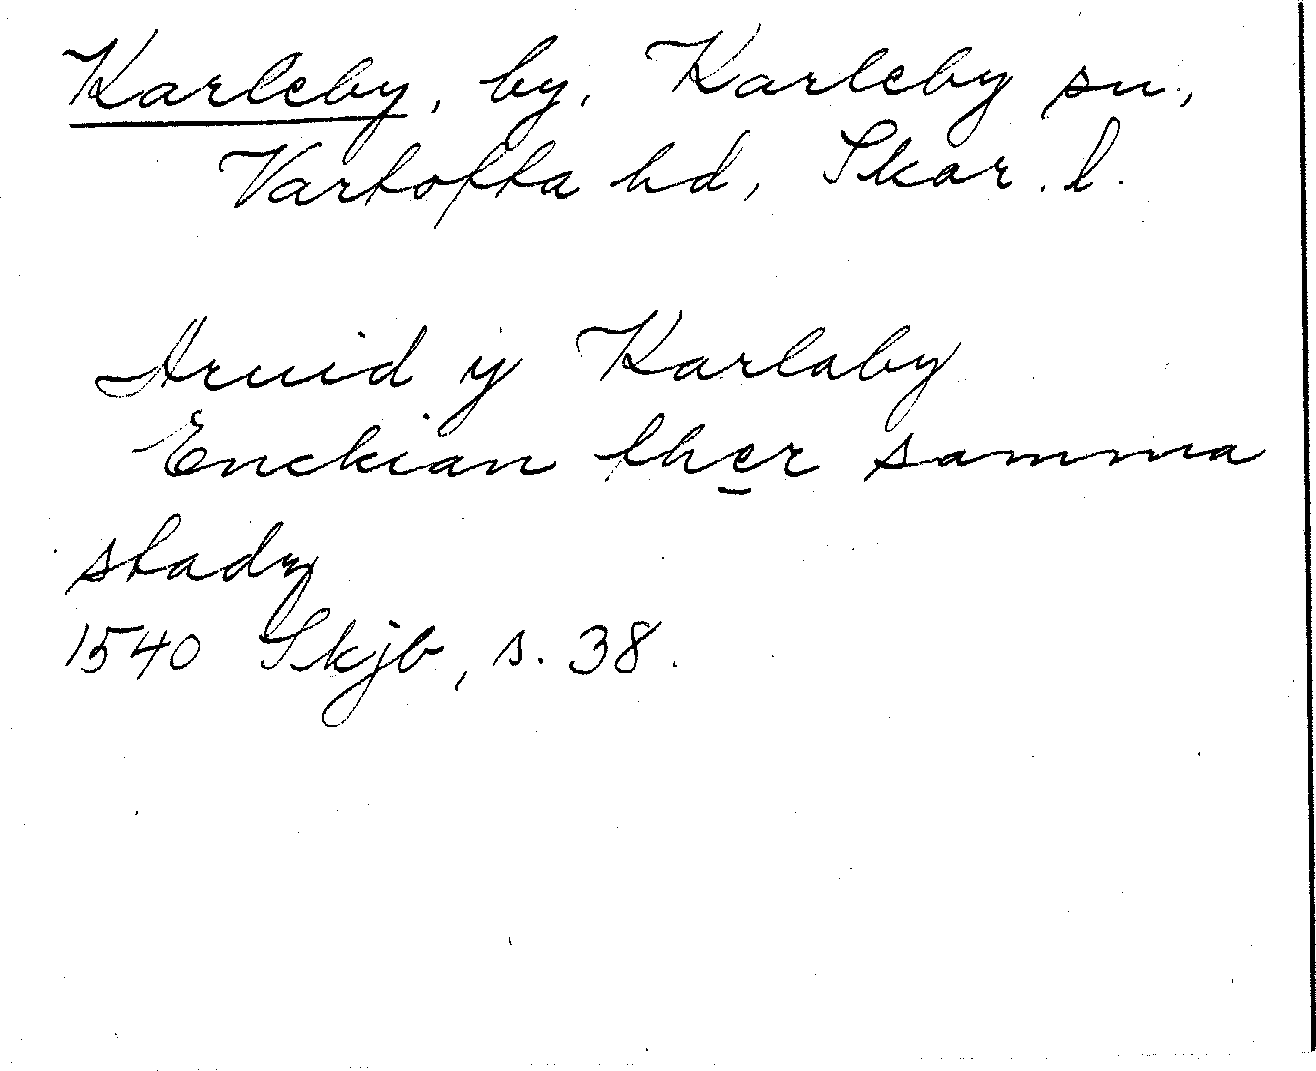 Karleby, by, Karleby sn.,
Vartofta hd, Skar. l.
Aruid ÿ Karlaby
Enckian ther samma
stadz
1540 Skjb, s. 38.